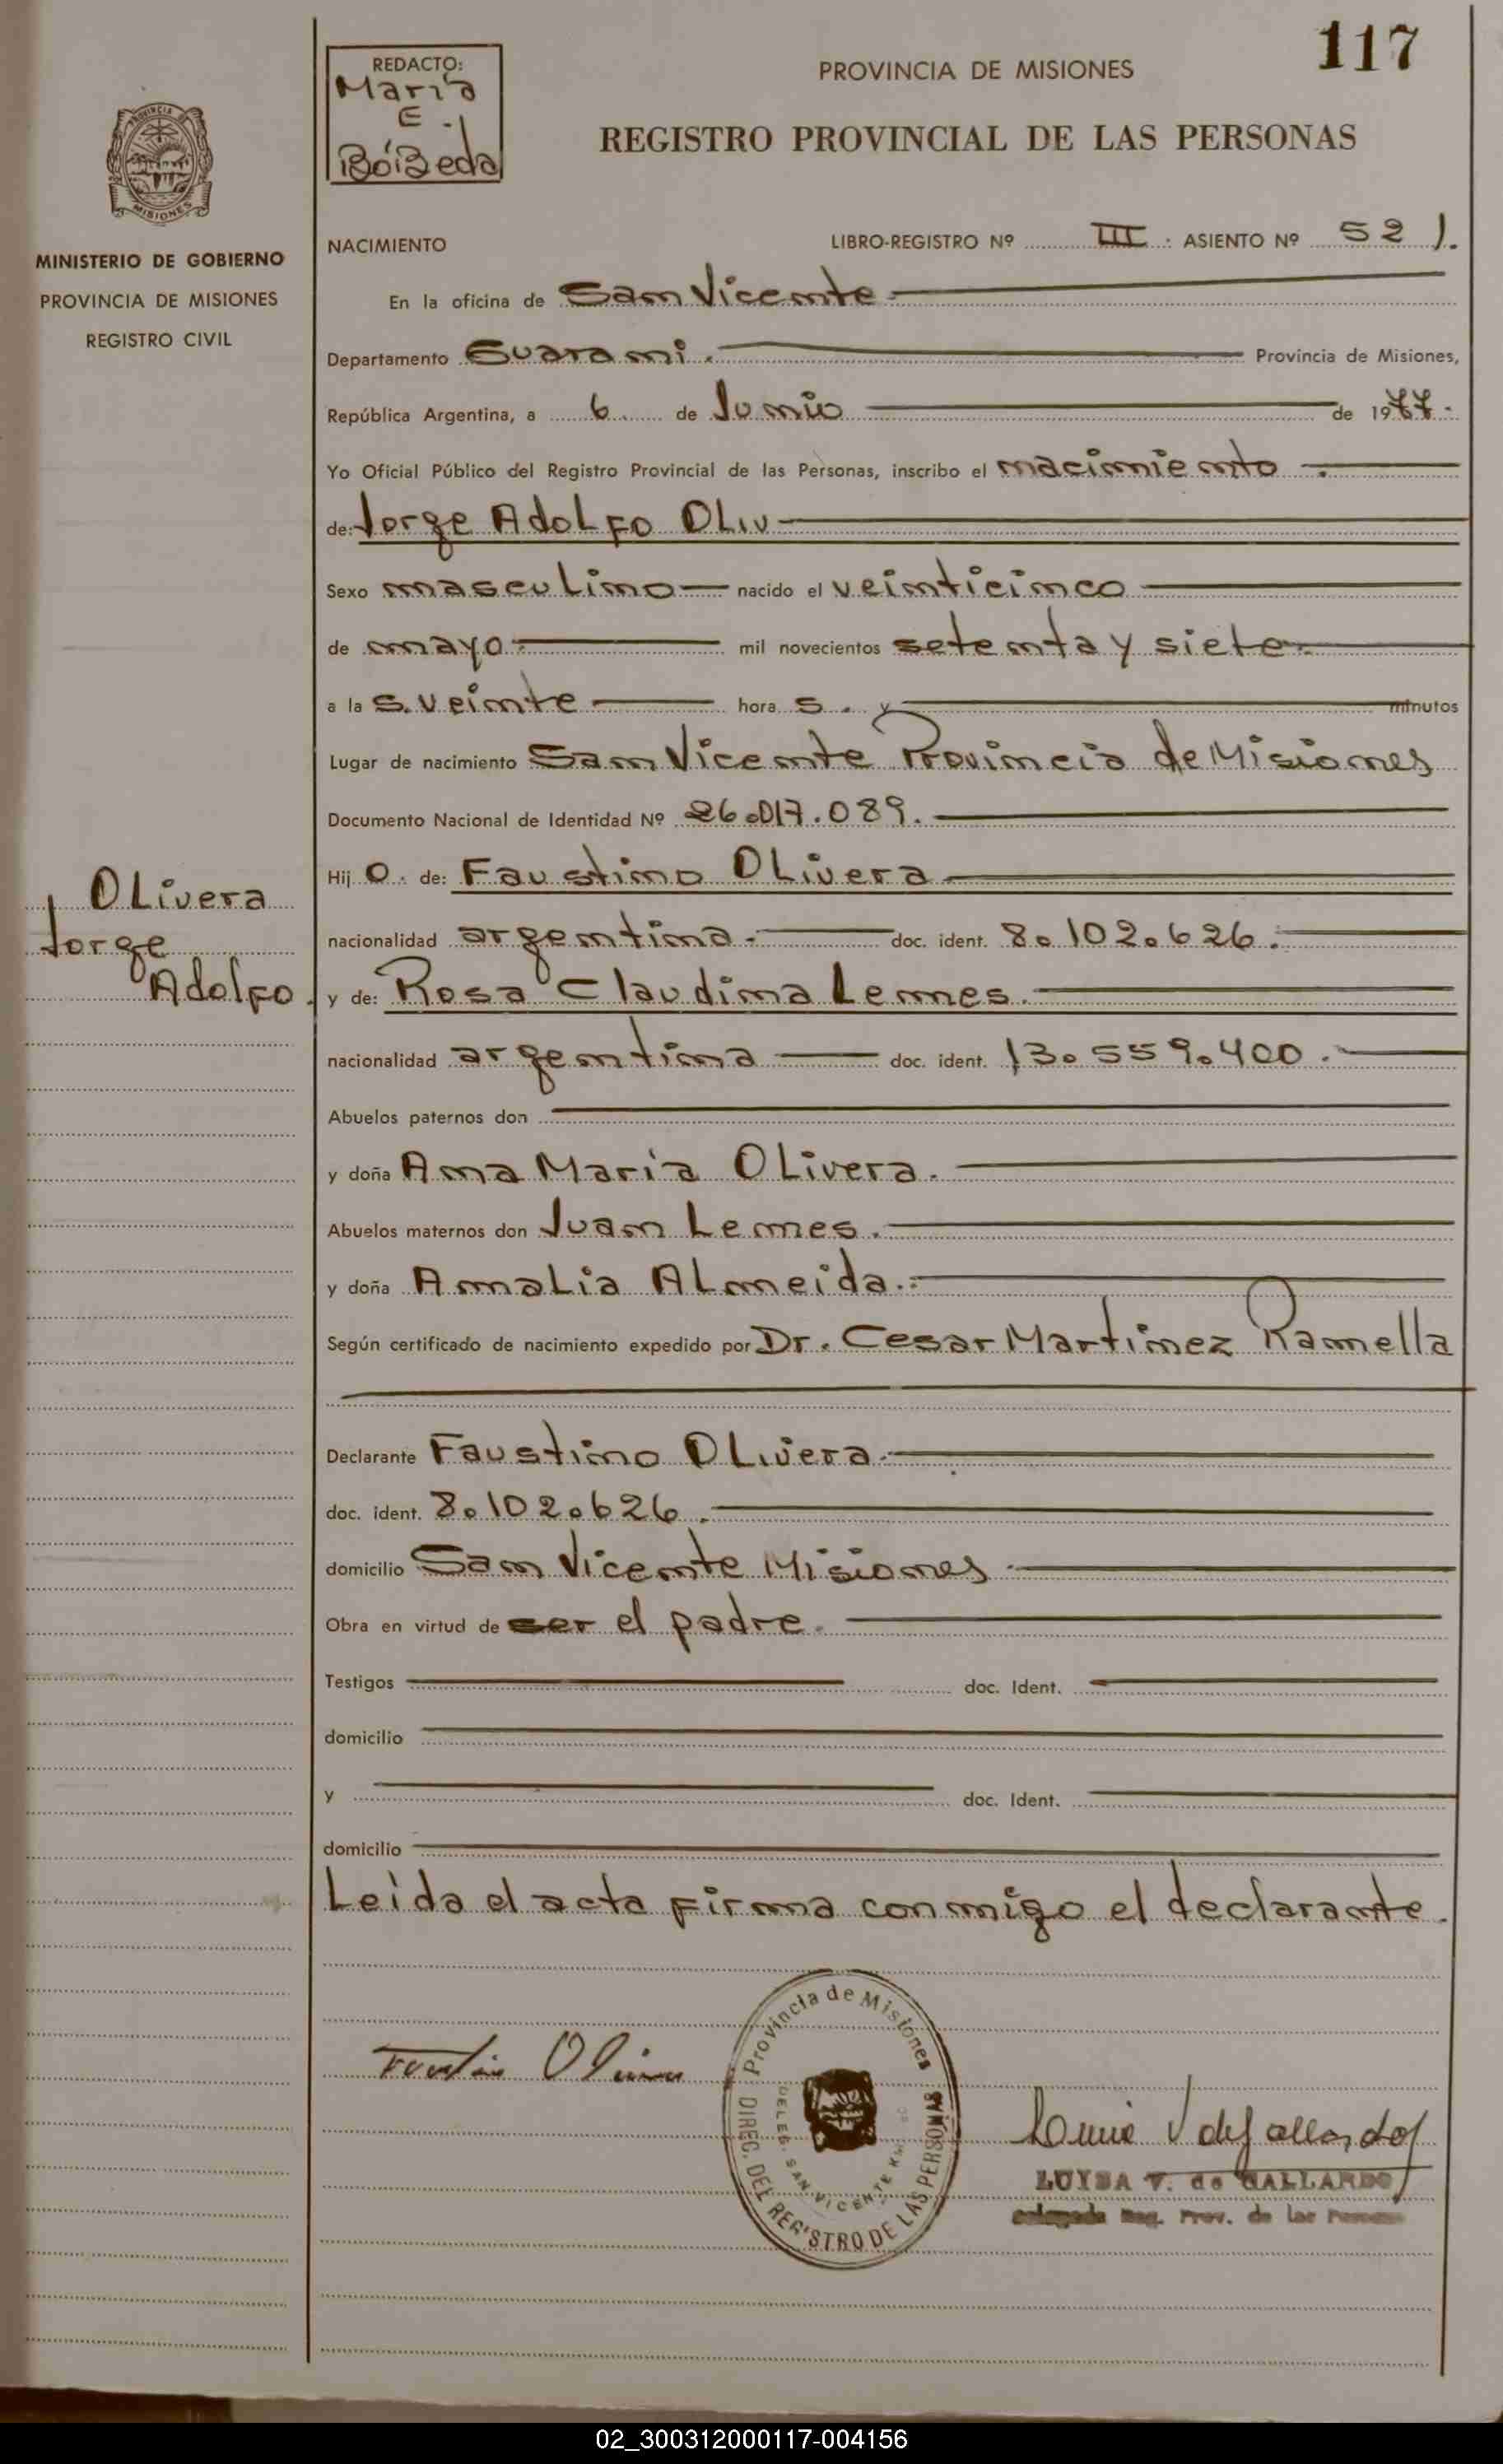 117
REDACTO:
Maria
E.
BóBeda
PROVINCIA DE MISIONES
REGISTRO PROVINCIAL DE LAS PERSONAS
MISIONES
MINISTERIO DE GOBIERNO
PROVINCIA DE MISIONES
REGISTRO CIVIL
NACIMIENTO LIBRO-REGISTRO Nº III ASIENTO Nº 521.
En la oficina de San Vicente
Departamento Guarani. Provincia de Misiones,
República Argentina, a 6 de Junio de 1977.
Yo Oficial Público del Registro Provincial de las Personas, inscribo el nacimiento.
de: Jorge Adolfo Oliv
Sexo masculino nacido el veinticinco
de mayo. mil novecientos setenta y siete.
a la s. veinte hora s. y minutos
Lugar de nacimiento San Vicente Provincia de Misiones
Documento Nacional de Identidad Nº 26.017.089.
Hij o. de: Faustino Olivera
Olivera
Jorge
Adolfo.
nacionalidad argentina. doc. ident. 8.102.626.
y de: Rosa Claudina Lemes.
nacionalidad argentina doc. ident. 13.559.400.
Abuelos paternos don
y doña Ana Maria Olivera.
Abuelos maternos don Juan Lemes.
y doña Amalia Almeida.
Según certificado de nacimiento expedido por Dr. Cesar Martinez Ramella
Declarante Faustino Olivera.
doc. ident. 8.102.626.
domicilio San Vicente Misiones
Obra en virtud de ser el padre.
Testigos doc. Ident.
domicilio
y doc. Ident.
domicilio
Leida el acta firma conmigo el declarante.
Provincia de Misiones
DIREC. DEL REGISTRO DE LAS PERSONAS
DELEG. SAN VICENTE
LUISA V. de GALLARDO
Delegada Reg. Prov. de las Personas
02_300312000117-004156